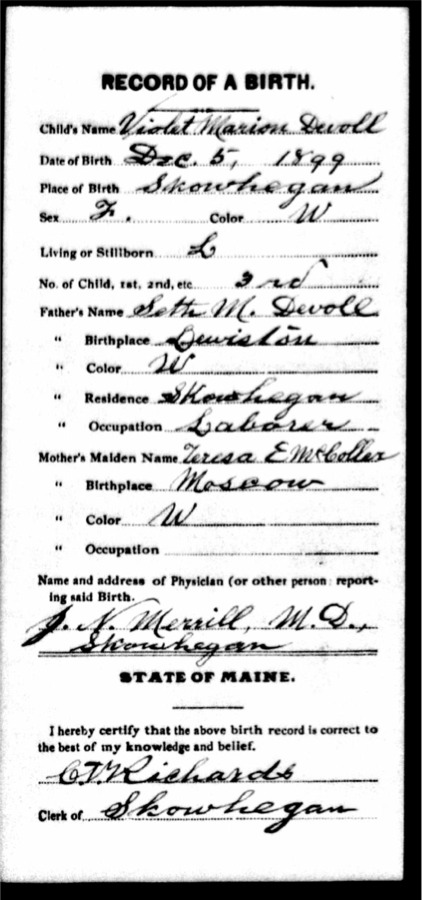 RECORD OF A BIRTH.
Child's Name Violet Marion Devoll
Date of Birth Dec. 5, 1899
Place of Birth Skowhegan
Sex F. Color W
Living or Stillborn L
No. of Child, 1st, 2nd, etc 3rd
Father's Name Seth M. Devoll
" Birthplace Lewiston
" Color W
" Residence Skowhegan
" Occupation Laborer
Mother's Maiden Name Teresa E McColler
" Birthplace Moscow
" Color W
" Occupation
Name and address of Physician (or other person report-
ing said Birth.
J. N. Merrill, M.D.,
Skowhegan
STATE OF MAINE.
I hereby certify that the above birth record is correct to
the best of my knowledge and belief.
Richards
Clerk of Skowhegan